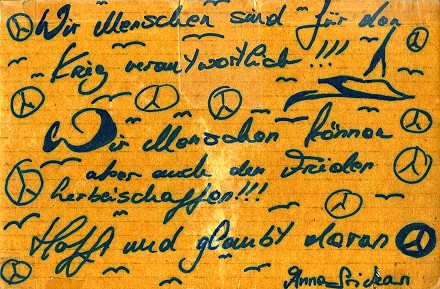 Wir Menschen sind für den
Krieg verantwortlich !!!
Wir Menschen können
aber auch den Frieden
herbeischaffen!!!
Hofft und glaubt daran
Anna